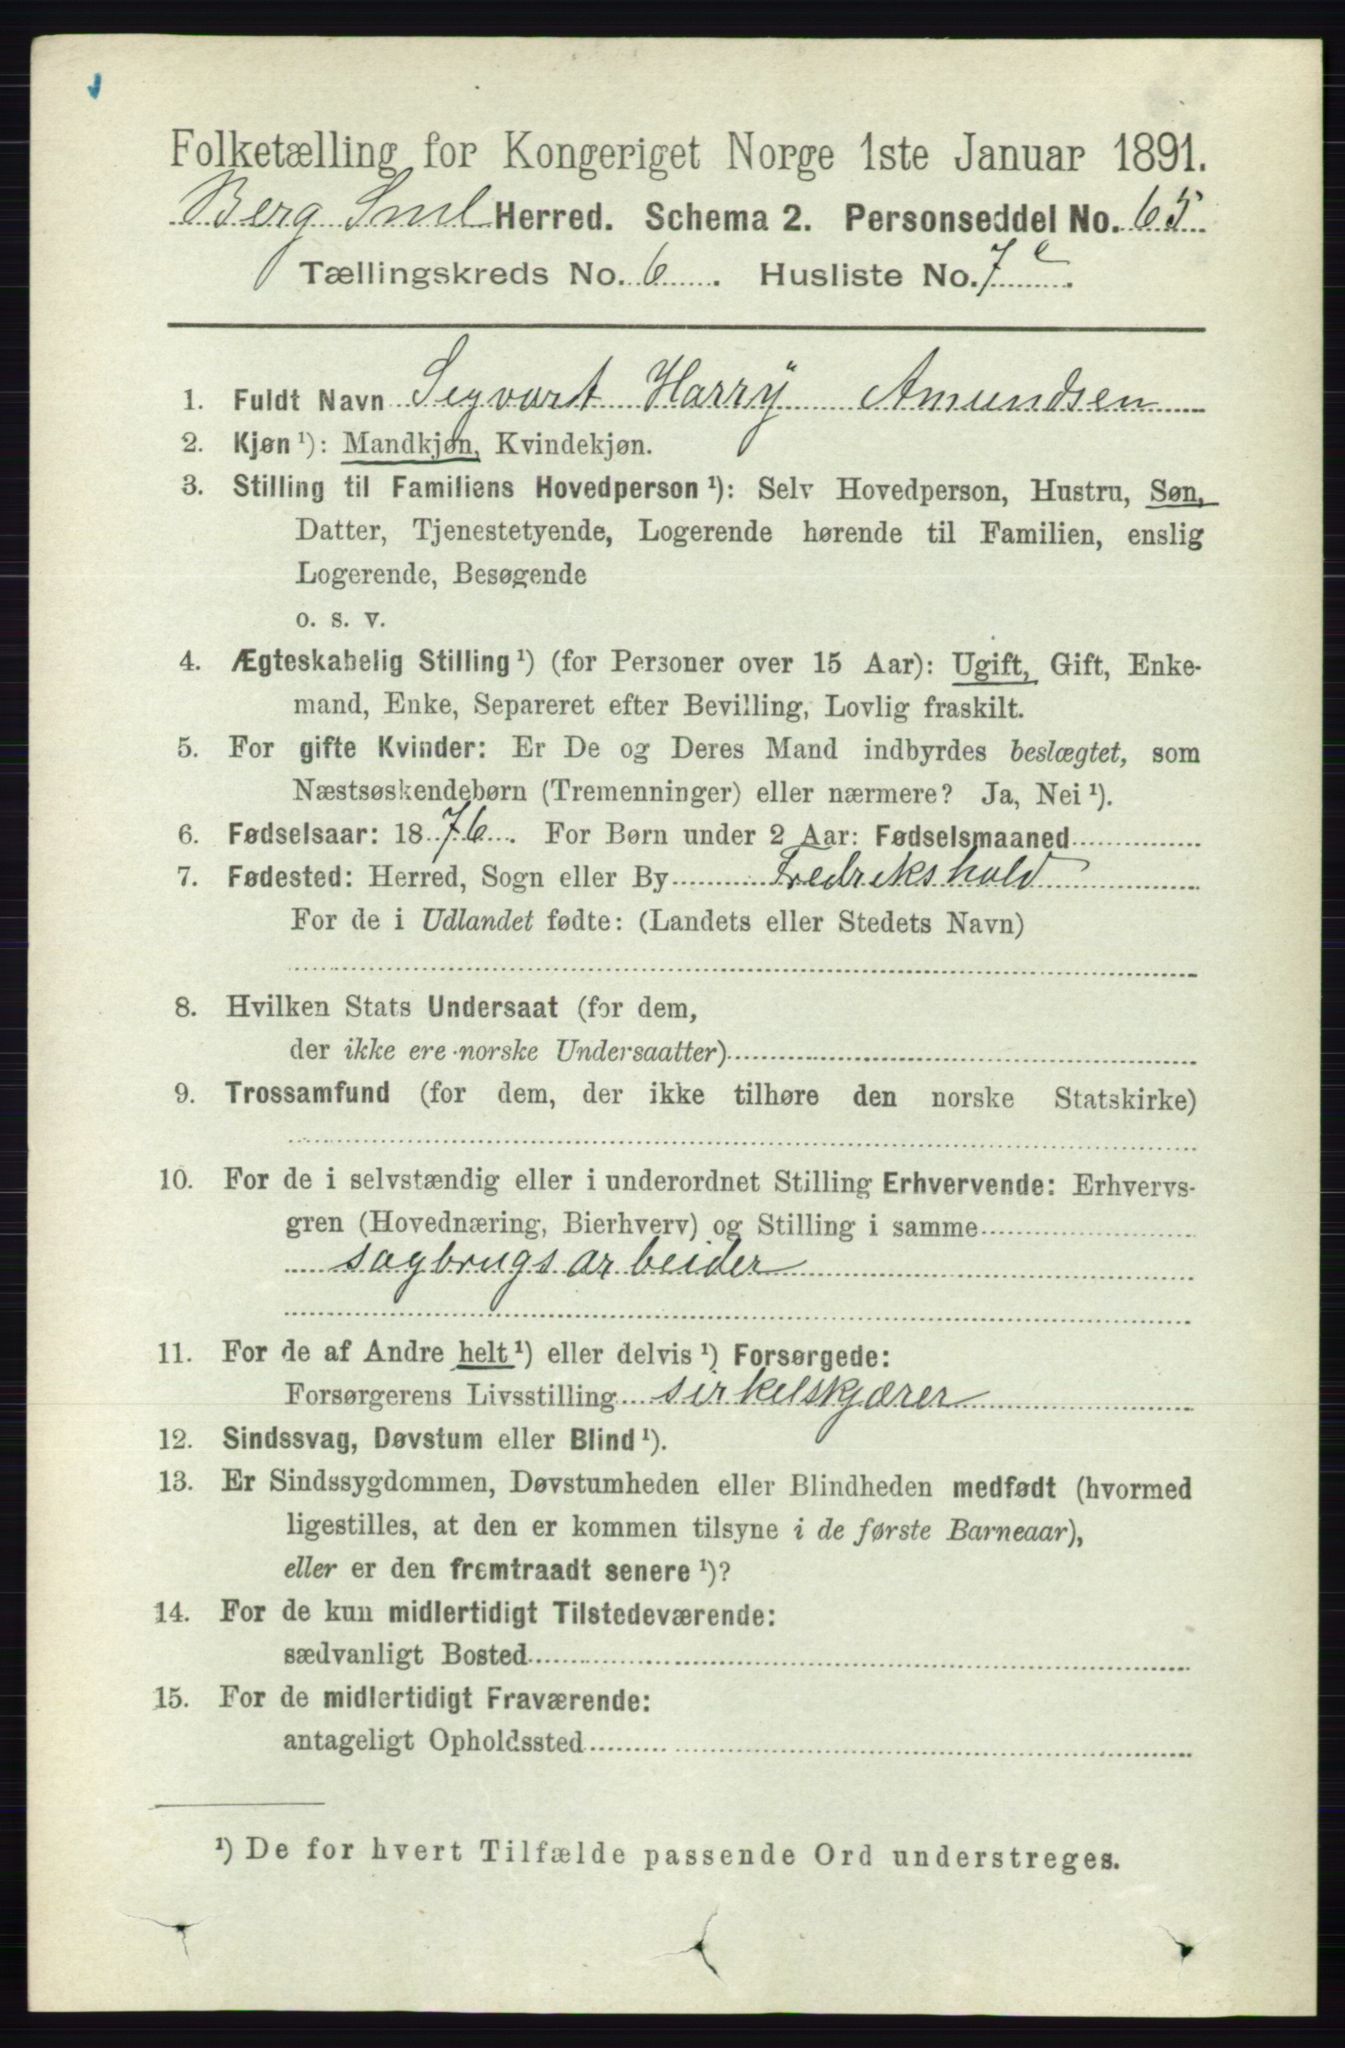 Folketælling for Kongeriget Norge 1ste Januar 1891.
Berg Sml Herred. Schema 2. Personseddel No. 65
Tællingskreds No. 6. Husliste No. 7 c.
1. Fuldt Navn Segvart Harry Amundsen
2. Kjøn ¹): Mandkjøn, Kvindekjøn.
3. Stilling til Familiens Hovedperson ¹): Selv Hovedperson, Hustru, Søn,
Datter, Tjenestetyende, Logerende hørende til Familien, enslig
Logerende, Besøgende
o. s. v.
4. Ægteskabelig Stilling ¹) (for Personer over 15 Aar): Ugift, Gift, Enke-
mand, Enke, Separeret efter Bevilling, Lovlig fraskilt.
5. For gifte Kvinder: Er De og Deres Mand indbyrdes beslægtet, som
Næstsøskendebørn (Tremenninger) eller nærmere? Ja, Nei ¹).
6. Fødselsaar: 1876. For Børn under 2 Aar: Fødselsmaaned
7. Fødested: Herred, Sogn eller By Fredrikshald
For de i Udlandet fødte: (Landets eller Stedets Navn)
8. Hvilken Stats Undersaat (for dem,
der ikke ere norske Undersaatter)
9. Trossamfund (for dem, der ikke tilhøre den norske Statskirke)
10. For de i selvstændig eller i underordnet Stilling Erhvervende: Erhvervs-
gren (Hovednæring, Bierhverv) og Stilling i samme
sagbrugsarbeider
11. For de af Andre helt ¹) eller delvis ¹) Forsørgede:
Forsørgerens Livsstilling sirkelskjærer
12. Sindssvag, Døvstum eller Blind ¹).
13. Er Sindssygdommen, Døvstumheden eller Blindheden medfødt (hvormed
ligestilles, at den er kommen tilsyne i de første Barneaar),
eller er den fremtraadt senere ¹)?
14. For de kun midlertidigt Tilstedeværende:
sædvanligt Bosted
15. For de midlertidigt Fraværende:
antageligt Opholdssted
¹) De for hvert Tilfælde passende Ord understreges.